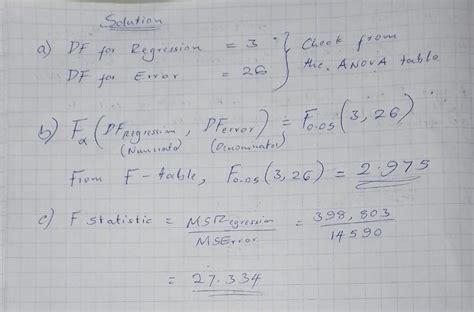 Solution
a) DF for Regression = 3 } Check from
DF for Error = 26 } the ANOVA table
b) Fα (DFregression, DFerror) = F0.05 (3, 26)
(Numerator) (Denominator)
From F-table, F0.05 (3, 26) = 2.975
c) F statistic = MSRegression / MSError = 398,803 / 14590
= 27.334